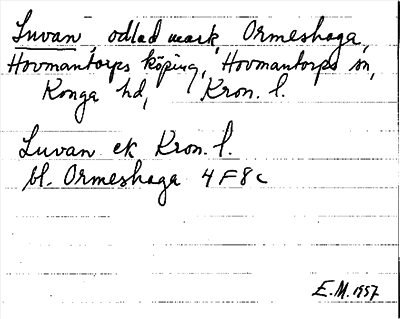 Luvan, odlad mark, Ormeshaga,
Hovmantorps köping, Hovmantorps sn,
Konga hd, Kron. l.
Luvan ek Kron. l.
bl. Ormeshaga 4F8c
E.M. 1957